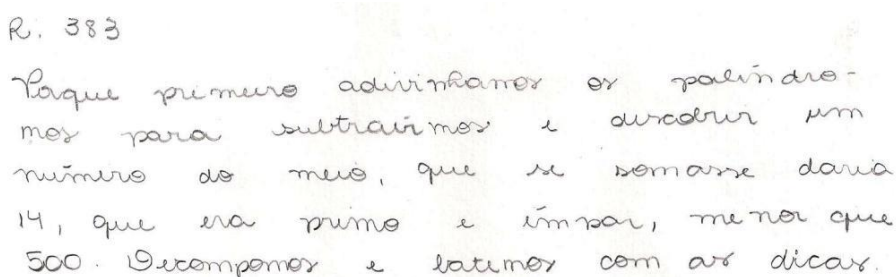 R. 383
Porque primeiro adivinhamos os palíndro-
mos para subtrairmos e descobrir um
número do meio, que se somasse daria
14, que era primo e ímpar, menor que
500. Decompomos e batemos com as dicas.